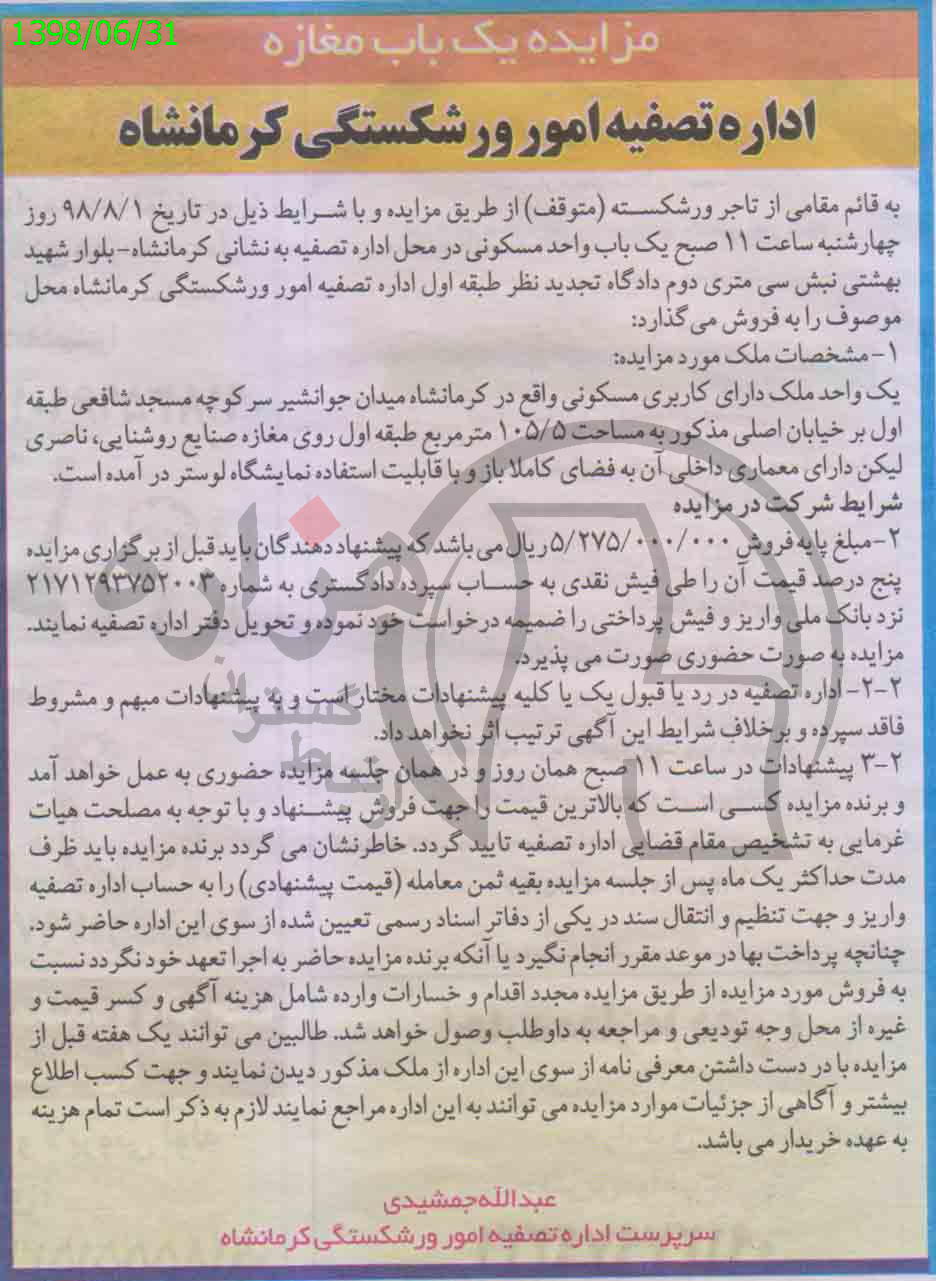 1398/06/31
مزایده یک باب مغازه
اداره تصفیه امور ورشکستگی کرمانشاه
به قائم مقامی از تاجر ورشکسته (متوقف) از طریق مزایده و با شرایط ذیل در تاریخ ۹۸/۸/۱ روز
چهارشنبه ساعت ۱۱ صبح یک باب واحد مسکونی در محل اداره تصفیه به نشانی کرمانشاه-بلوار شهید
بهشتی نبش سی متری دوم دادگاه تجدید نظر طبقه اول اداره تصفیه امور ورشکستگی کرمانشاه محل
موصوف را به فروش می گذارد:
۱-مشخصات ملک مورد مزایده:
یک واحد ملک دارای کاربری مسکونی واقع در کرمانشاه میدان جوانشیر سر کوچه مسجد شافعی طبقه
اول بر خیابان اصلی مذکور به مساحت ۱۰۵/۵ مترمربع طبقه اول روی مغازه صنایع روشنایی، ناصری
لیکن دارای معماری داخلی آن به فضای کاملا باز و با قابلیت استفاده نمایشگاه لوستر در آمده است.
شرایط شرکت در مزایده
۲-مبلغ پایه فروش ۵/۲۷۵/۰۰۰/۰۰۰ ریال می باشد که پیشنهاد دهندگان باید قبل از برگزاری مزایده
پنج درصد قیمت آن را طی فیش نقدی به حساب سپرده دادگستری به شماره ۲۱۷۱۲۹۳۷۵۲۰۰۳
نزد بانک ملی واریز و فیش پرداختی را ضمیمه درخواست خود نموده و تحویل دفتر اداره تصفیه نمایند.
مزایده به صورت حضوری صورت می پذیرد.
۲-۲- اداره تصفیه در رد یا قبول یک یا کلیه پیشنهادات مختار است و به پیشنهادات مبهم و مشروط
فاقد سپرده و برخلاف شرایط این آگهی ترتیب اثر نخواهد داد.
۳-۲ پیشنهادات در ساعت ۱۱ صبح همان روز و در همان جلسه مزایده حضوری به عمل خواهد آمد
و برنده مزایده کسی است که بالاترین قیمت را جهت فروش پیشنهاد و با توجه به مصلحت هیات
غرمایی به تشخیص مقام قضایی اداره تصفیه تایید گردد. خاطرنشان می گردد برنده مزایده باید ظرف
مدت حداکثر یک ماه پس از جلسه مزایده بقیه ثمن معامله (قیمت پیشنهادی) را به حساب اداره تصفیه
واریز و جهت تنظیم و انتقال سند در یکی از دفاتر اسناد رسمی تعیین شده از سوی این اداره حاضر شود.
چنانچه پرداخت بها در موعد مقرر انجام نگیرد یا آنکه برنده مزایده حاضر به اجرا تعهد خود نگردد نسبت
به فروش مورد مزایده از طریق مزایده مجدد اقدام و خسارات وارده شامل هزینه آگهی و کسر قیمت و
غیره از محل وجه تودیعی و مراجعه به داوطلب وصول خواهد شد. طالبین می توانند یک هفته قبل از
مزایده با در دست داشتن معرفی نامه از سوی این اداره از ملک مذکور دیدن نمایند و جهت کسب اطلاع
بیشتر و آگاهی از جزئیات موارد مزایده می توانند به این اداره مراجع نمایند لازم به ذکر است تمام هزینه
به عهده خریدار می باشد.
عبدالله جمشیدی
سرپرست اداره تصفیه امور ورشکستگی کرمانشاه